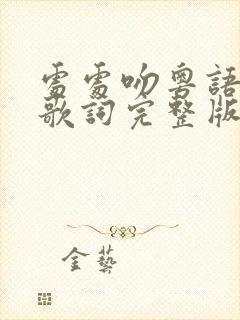 處處吻粵語
歌詞完整版
金藝